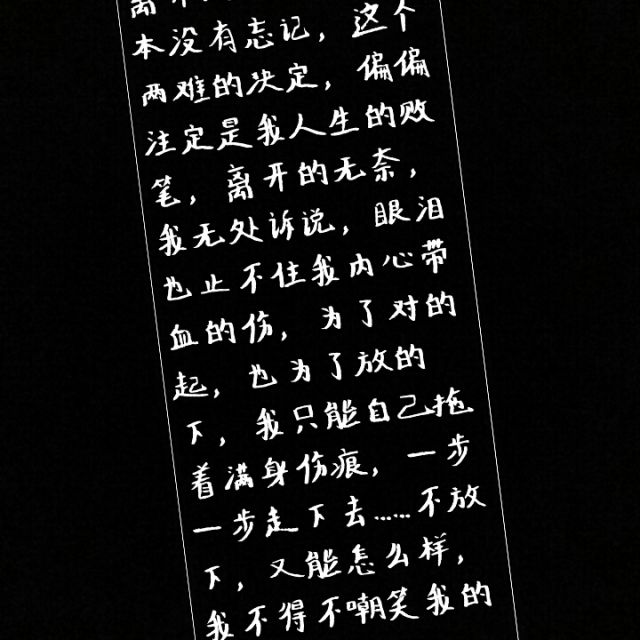 离不
本没有忘记，这个
两难的决定，偏偏
注定是我人生的败
笔，离开的无奈，
我无处诉说，眼泪
也止不住我内心带
血的伤，为了对的
起，也为了放的
下，我只能自己拖
着满身伤痕，一步
一步走下去……不放
下，又能怎么样，
我不得不嘲笑我的